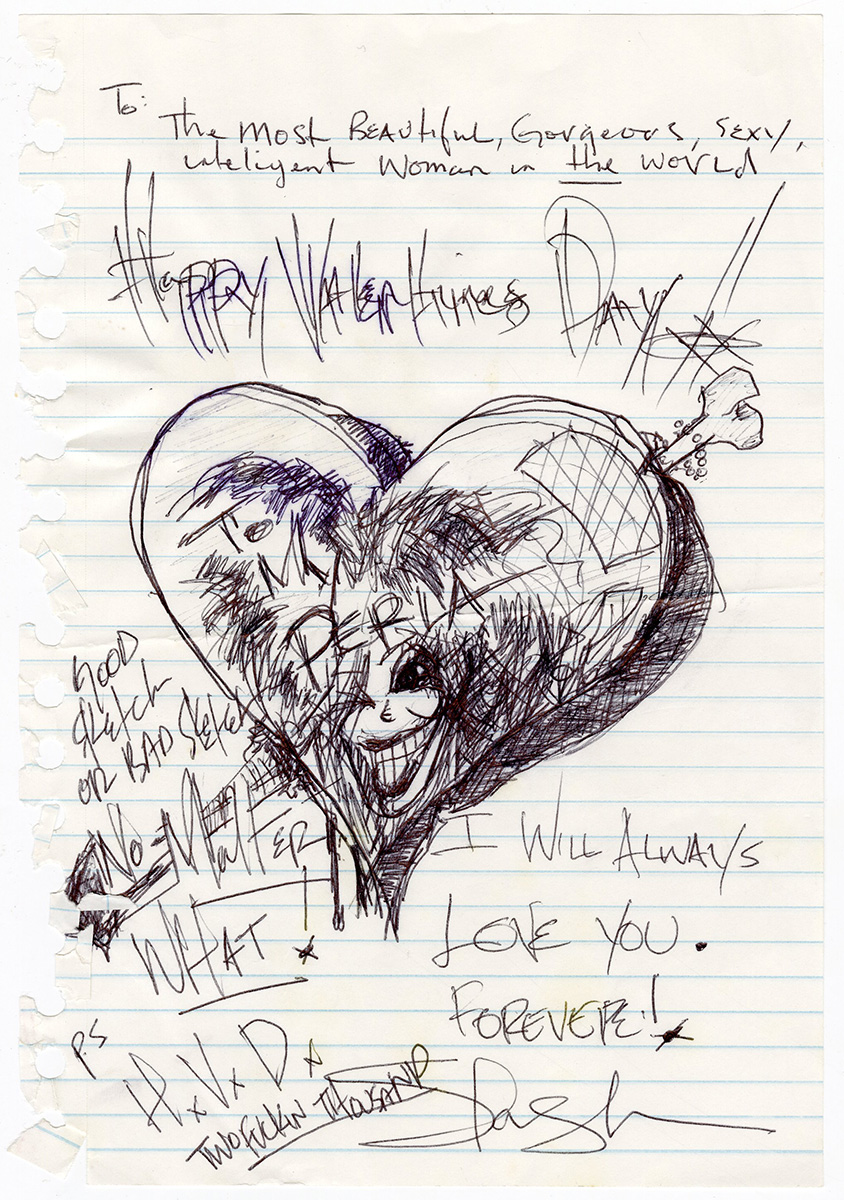 To:
The MOST BEAUTifUL, GorgeoUs, SExy,
inteligent Woman in the WORLd
HAPPY VALENtines DAAY!!
To
MY
PERLA
GOOD
Sketch
OR BAD Sketch
No-MATTER
WHAT!
I WILL ALWAYS
LOVE YOU.
FOREVER!
P.S
H.V.D.
TWO FUCKIN THOUSAND
Slash